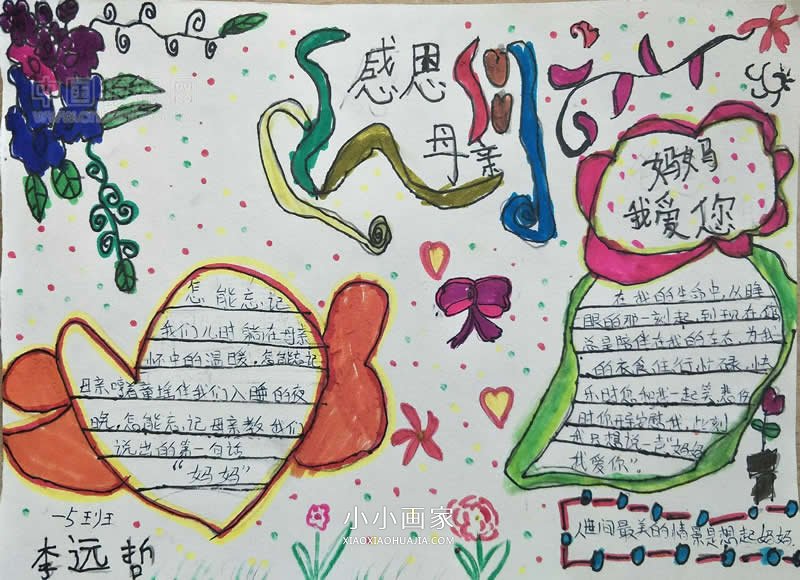 感恩
母亲
妈妈
我爱您
怎能忘记
我们儿时躺在母亲
怀中的温暖，怎能忘记
母亲哼着童摇伴我们入睡的夜
晚，怎能忘记母亲教我们
说出的第一句话
“妈妈”
在我的生命中，从睁
眼的那一刻起，到现在您
总是陪伴在我的左右，为我
的衣食住行忙碌，快
乐时您和我一起笑，悲伤
时你安慰我，此刻
我只想说一声“妈妈
我爱你”。
人世间最美的情景是想起妈妈
一5班
李远哲
小小画家
XIAOXIAOHUAJIA.COM
中国
网